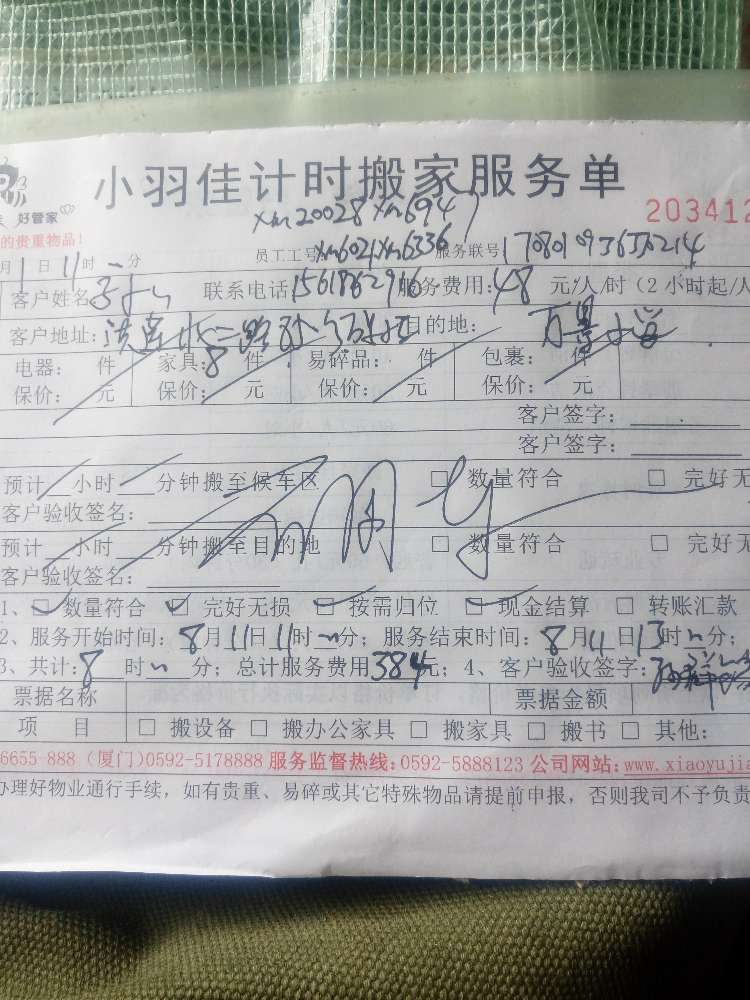 小羽佳计时搬家服务单
好管家
203412
xm20028 xm6947
的贵重物品！
月1日11时 分 员工工号xm6021xm6336服务联号
客户姓名 联系电话 服务费用：48元/人/时（2小时起/人
客户地址： 目的地：万景小学
电器： 件 家具：8件 易碎品： 件 包裹： 件
保价： 元 保价： 元 保价： 元 保价： 元
客户签字：
客户签字：
预计 小时 分钟搬至候车区 □ 数量符合 □ 完好无
客户验收签名：
预计 小时 分钟搬至目的地 □ 数量符合 □ 完好无
客户验收签名：
1、☑ 数量符合 ☑ 完好无损 ☑ 按需归位 ☑ 现金结算 □ 转账汇款
2、服务开始时间：8月11日11时 分；服务结束时间：8月11日13时 分；
3、共计：8时 分；总计服务费用384元；4、客户验收签字：
票据名称 票据金额
项 目 □ 搬设备 □ 搬办公家具 □ 搬家具 □ 搬书 □ 其他：
6655 888 (厦门)0592-5178888 服务监督热线：0592-5888123 公司网站：www.xiaoyujia
办理好物业通行手续，如有贵重、易碎或其它特殊物品请提前申报，否则我司不予负责